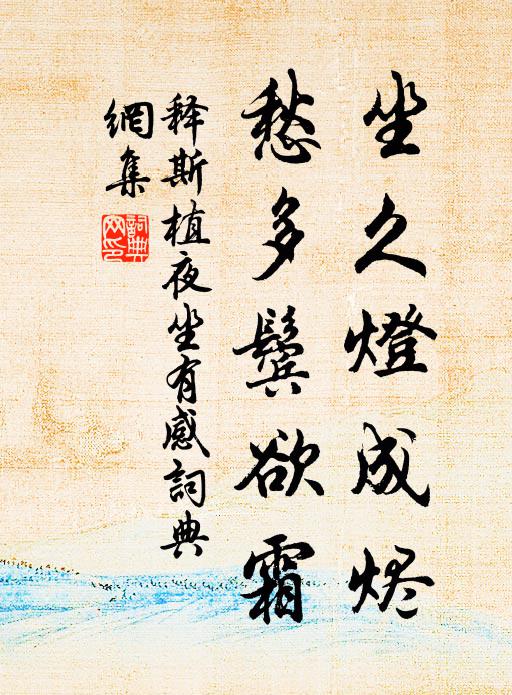 坐久燈成烬
愁多鬓欲霜
释斯植夜坐有感詞典
網集
詞典
网印